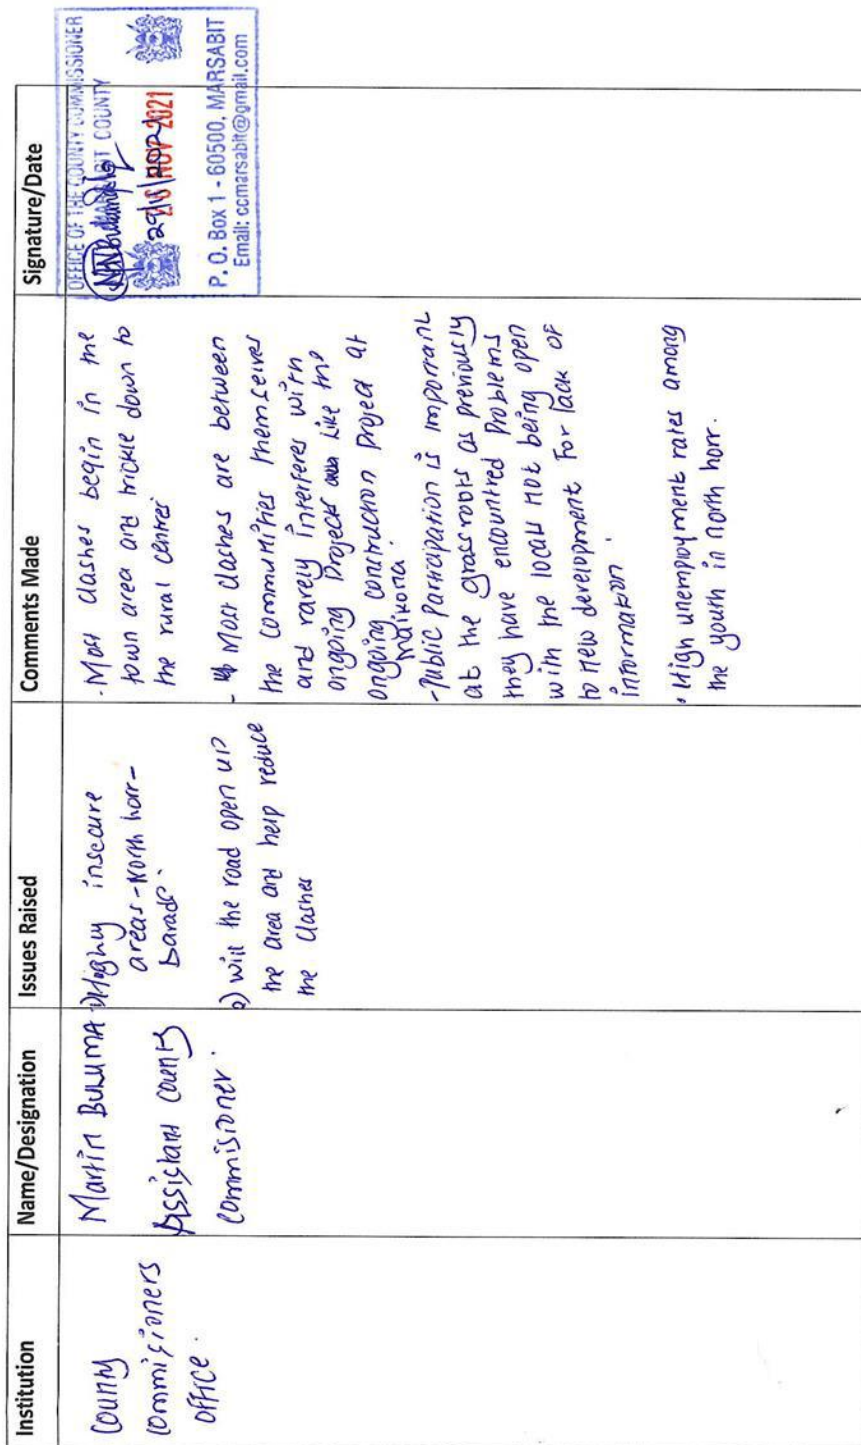 Institution
Name/Designation
Issues Raised
Comments Made
Signature/Date
County
Commissioners
office.
Martin BULUMA
Assistant County
Commisioner.
1) Highly insecure
areas - North horr -
2) Will the road open up
the area and help reduce
the Clashes
- Most clashes begin in the
town area and trickle down to
the rural centres
- Most clashes are between
the communities themselves
and rarely interferes with
ongoing Projects like the
ongoing construction project at
Maikona.
- Public Participation is important
at the grassroots as previously
they have encountred Problems
with the locals not being open
to new development For lack of
information.
• High unemployment rates among
the youth in north horr.
OFFICE OF THE COUNTY COMMISSIONER
MARSABIT COUNTY
29/11/2021
NOV 2021
P. O. Box 1 - 60500, MARSABIT
Email: ccmarsabit@gmail.com